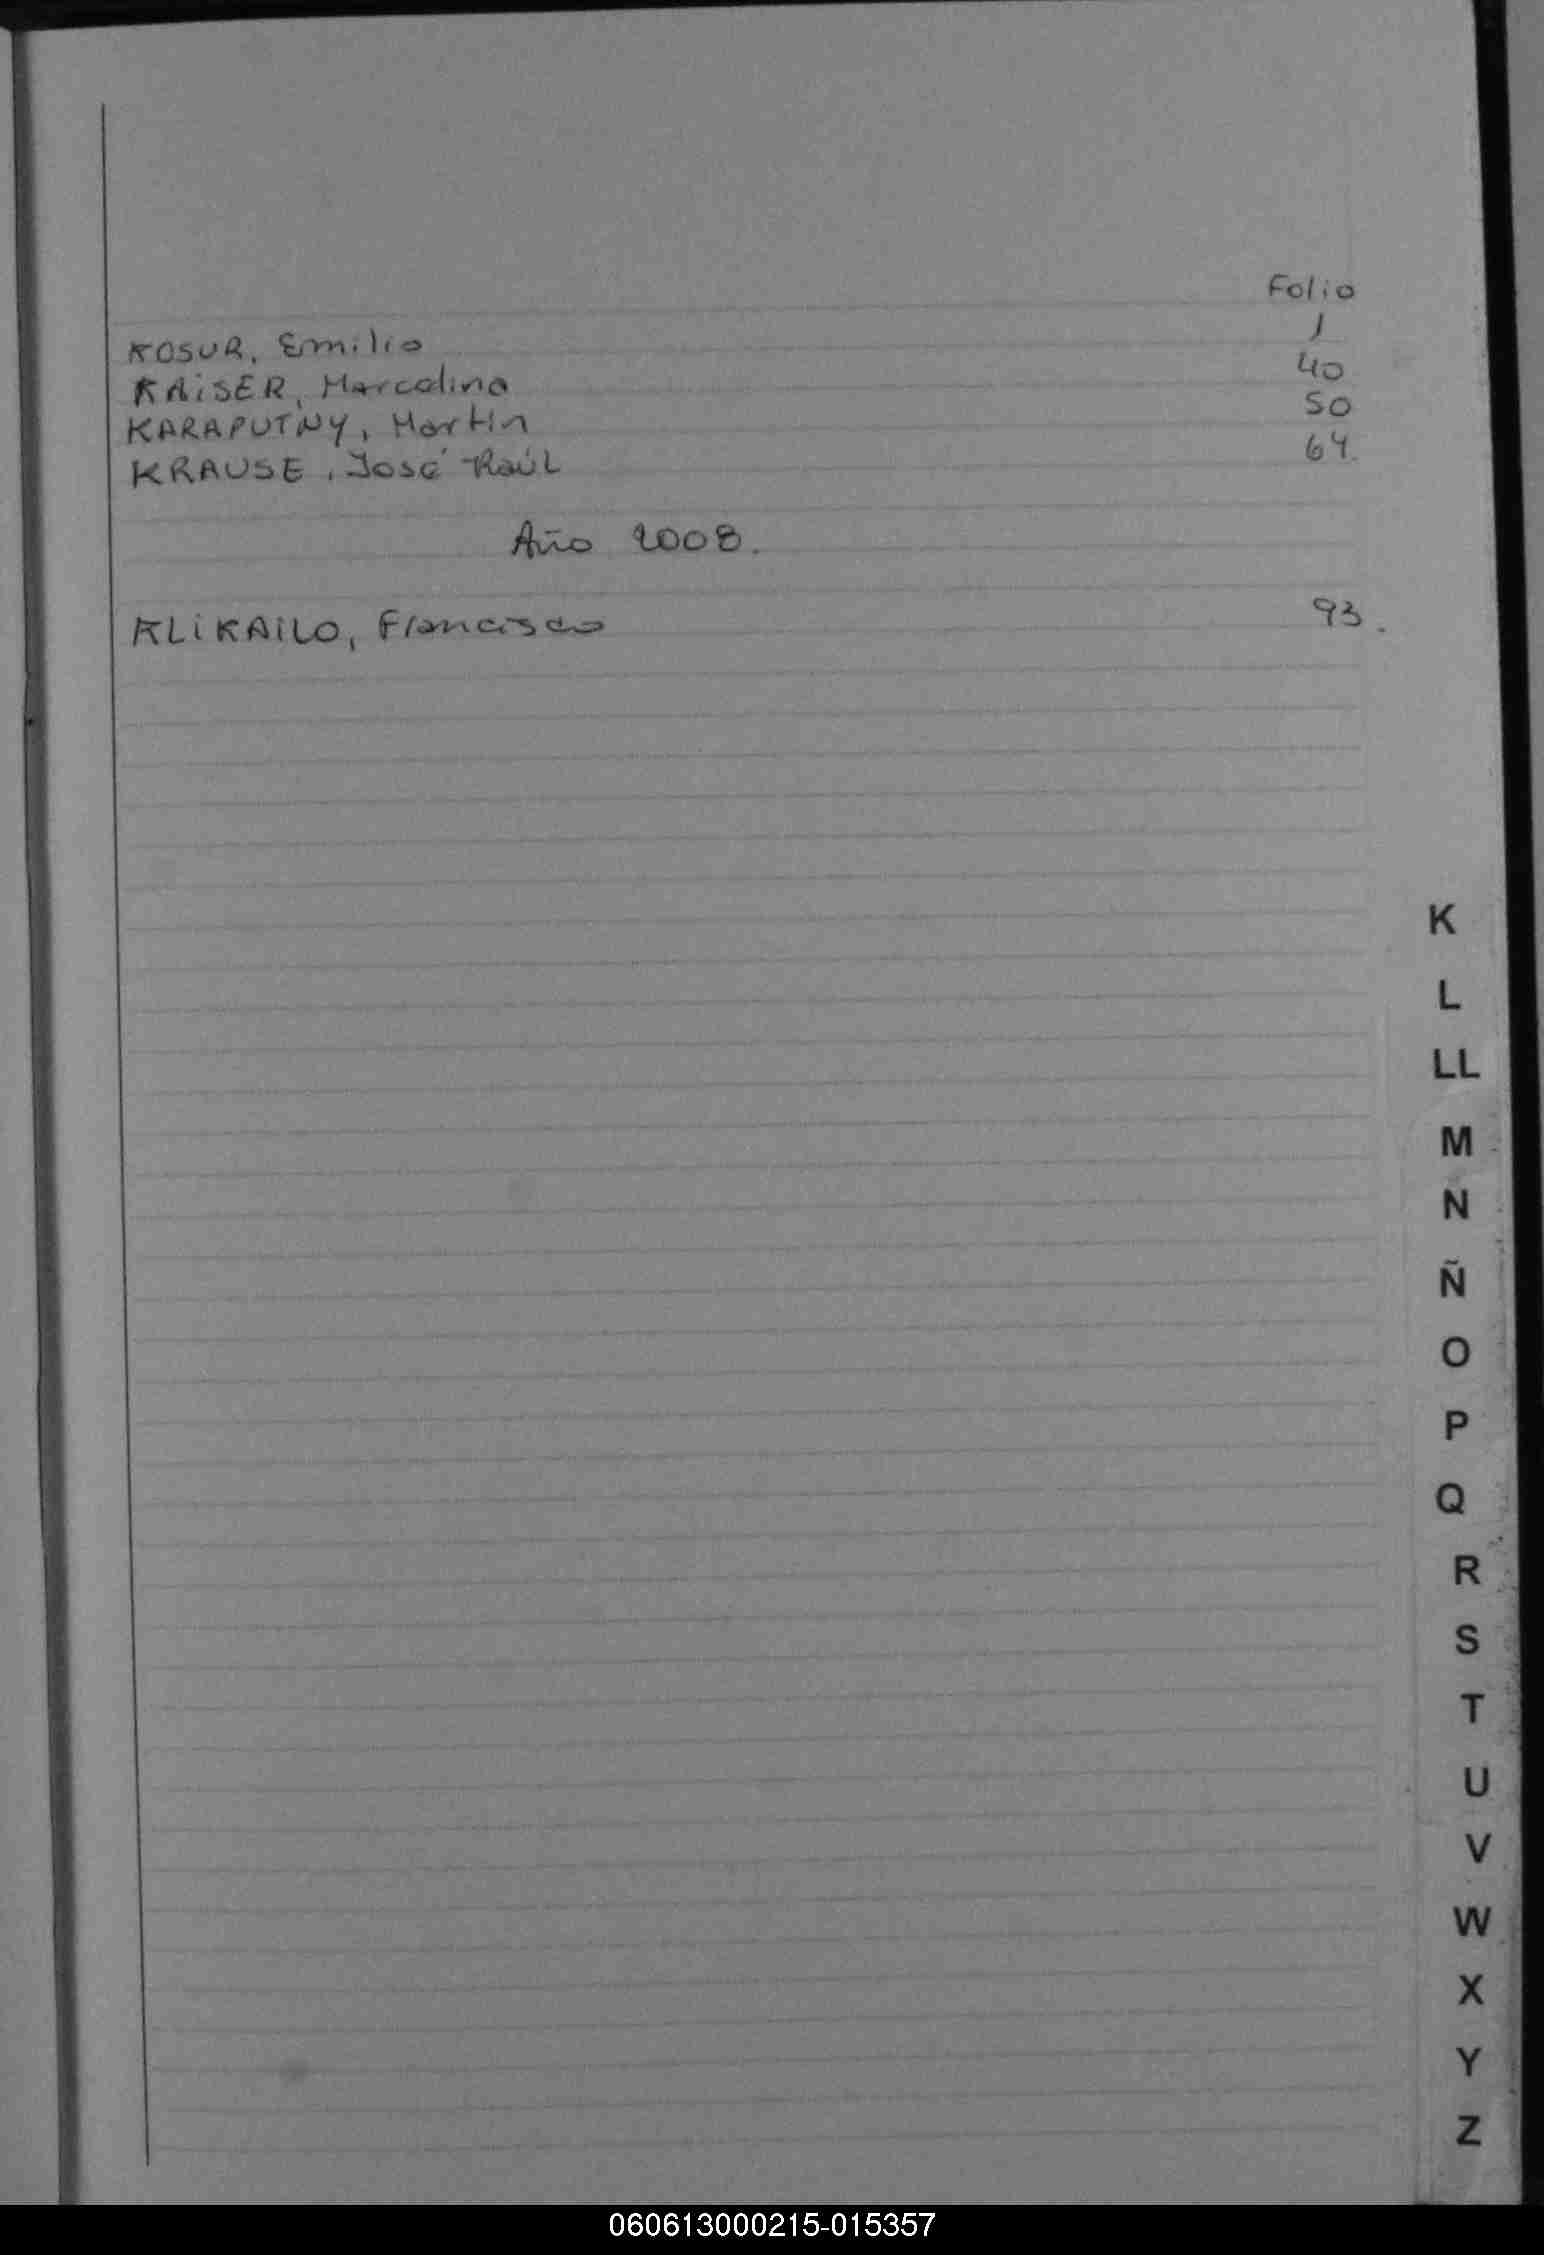 Folio
KOSUR, Emilio 1
KAiSER, Marcelino 40
KARAPUTNY, Martin 50
KRAUSE, José Raúl 64.
Año 2008.
KLiKAiLO, Francisco 93.
K
L
LL
M
N
Ñ
O
P
Q
R
S
T
U
V
W
X
Y
Z
060613000215-015357